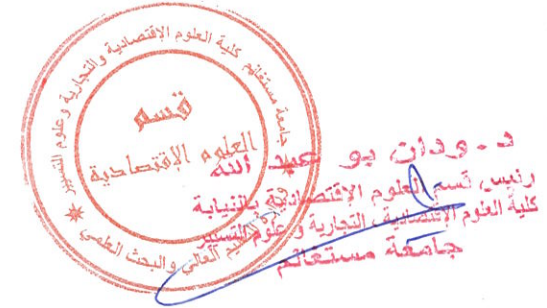 جامعة مستغانم كلية العلوم الاقتصادية والتجارية وعلوم التسيير
وزارة التعليم العالي والبحث العلمي
قسم
العلوم الاقتصادية
د. ودان بو عبد الله
رئيس قسم العلوم الاقتصادية بالنيابة
كلية العلوم الاقتصادية، التجارية و علوم التسيير
جامعة مستغانم